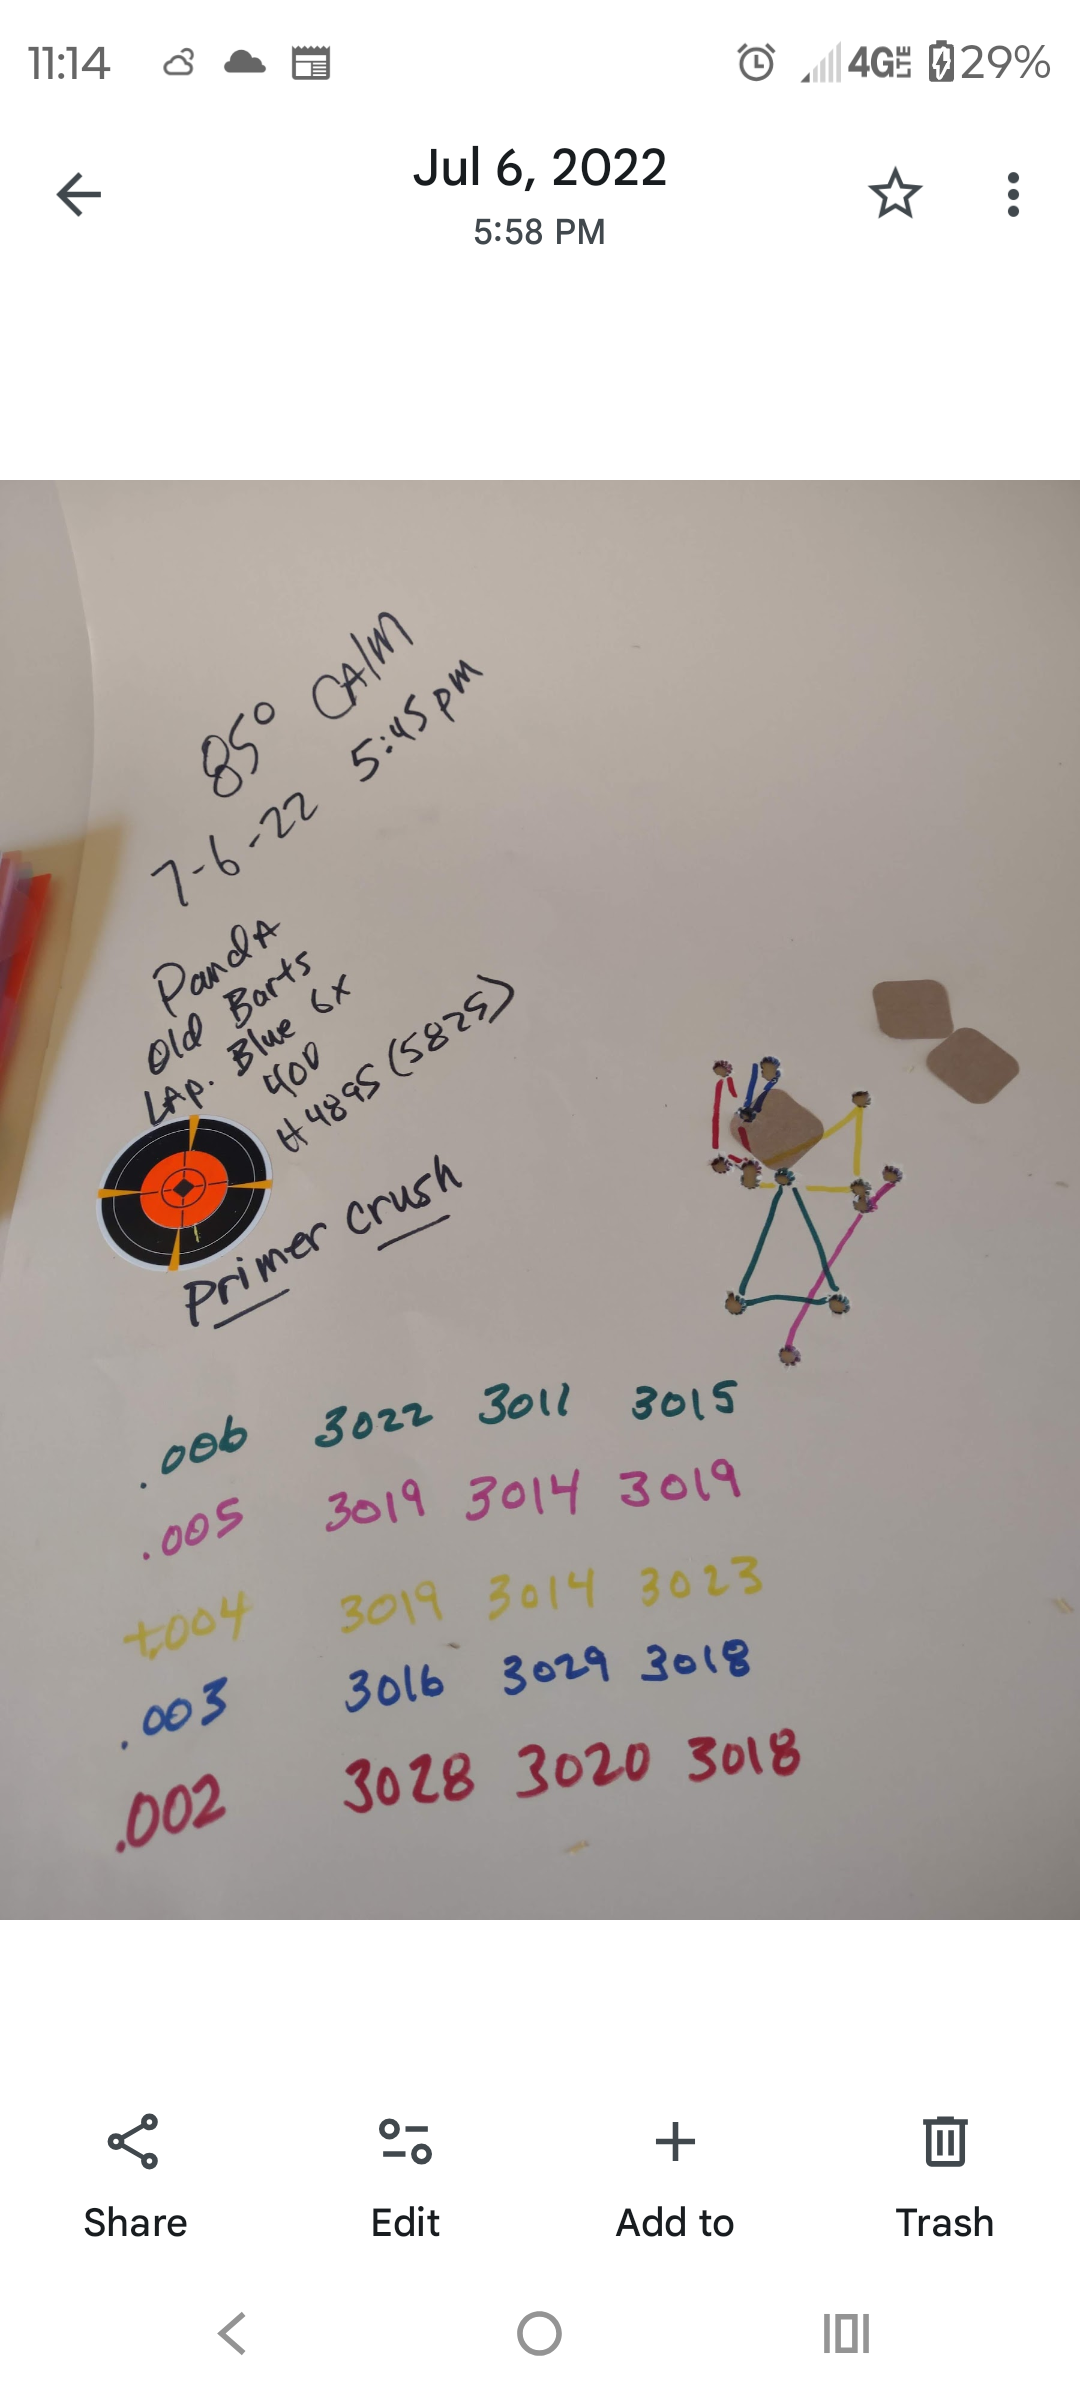 11:14 4G LTE 29%
Jul 6, 2022
5:58 PM
85° CAlM
7-6-22 5:45 pm
PandA
Old Barts
LAp. Blue 6x
400
H4895 (5825)
Primer crush
.006 3022 3011 3015
.005 3019 3014 3019
+.004 3019 3014 3023
.003 3016 3029 3018
.002 3028 3020 3018
Share Edit Add to Trash